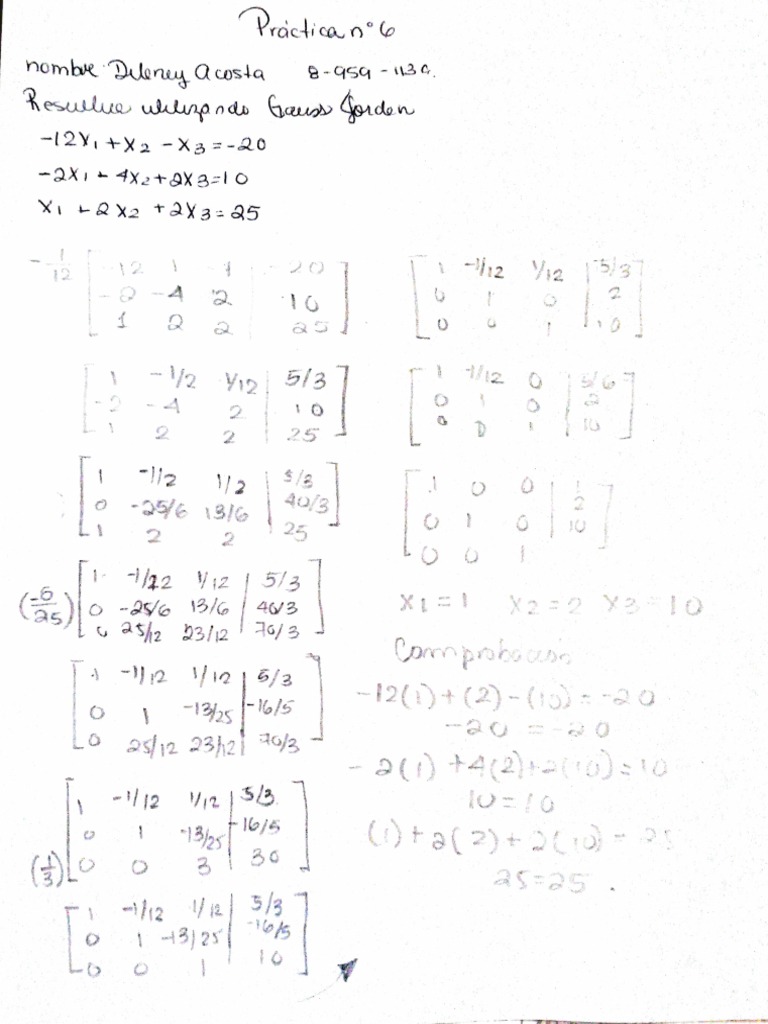 Práctica n° 6
nombre Dileney Acosta 8-959-113
Resuelve utilizando Gauss Jorden
-12x1 + x2 - x3 = -20
-2x1 - 4x2 + 2x3 = 10
x1 + 2x2 + 2x3 = 25
-1/12 [ -12 1 -1 | -20 ]
-2 -4 2 | 10
1 2 2 | 25
[ 1 -1/2 1/12 | 5/3 ]
-2 -4 2 | 10
1 2 2 | 25
[ 1 -1/2 1/2 | 5/3 ]
0 -25/6 13/6 | 40/3
1 2 2 | 25
(-6/25) [ 1 -1/12 1/12 | 5/3 ]
0 -25/6 13/6 | 40/3
0 25/12 23/12 | 70/3
[ 1 -1/12 1/12 | 5/3 ]
0 1 -13/25 | -16/5
0 25/12 23/12 | 70/3
[ 1 -1/12 1/12 | 5/3 ]
0 1 -13/25 | -16/5
(1/3) 0 0 3 | 30
[ 1 -1/12 1/12 | 5/3 ]
0 1 -13/25 | -16/5
0 0 1 | 10
[ 1 -1/12 1/12 | 5/3 ]
0 1 0 | 2
0 0 1 | 10
[ 1 -1/12 0 | 5/6 ]
0 1 0 | 2
0 0 1 | 10
[ 1 0 0 | 1 ]
0 1 0 | 2
0 0 1 | 10
x1 = 1 x2 = 2 x3 = 10
Comprobación
-12(1) + (2) - (10) = -20
-20 = -20
-2(1) + 4(2) + 2(10) = 10
10 = 10
(1) + 2(2) + 2(10) = 25
25 = 25.